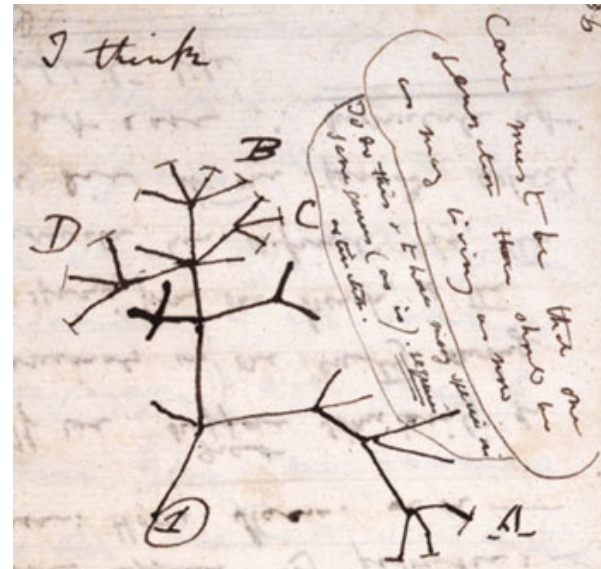 36
I think
Case must be that one
generation then should be
as many living as now
To do this & to have many species in
same genus (as is). requires
extinction.
B
C
D
A
1